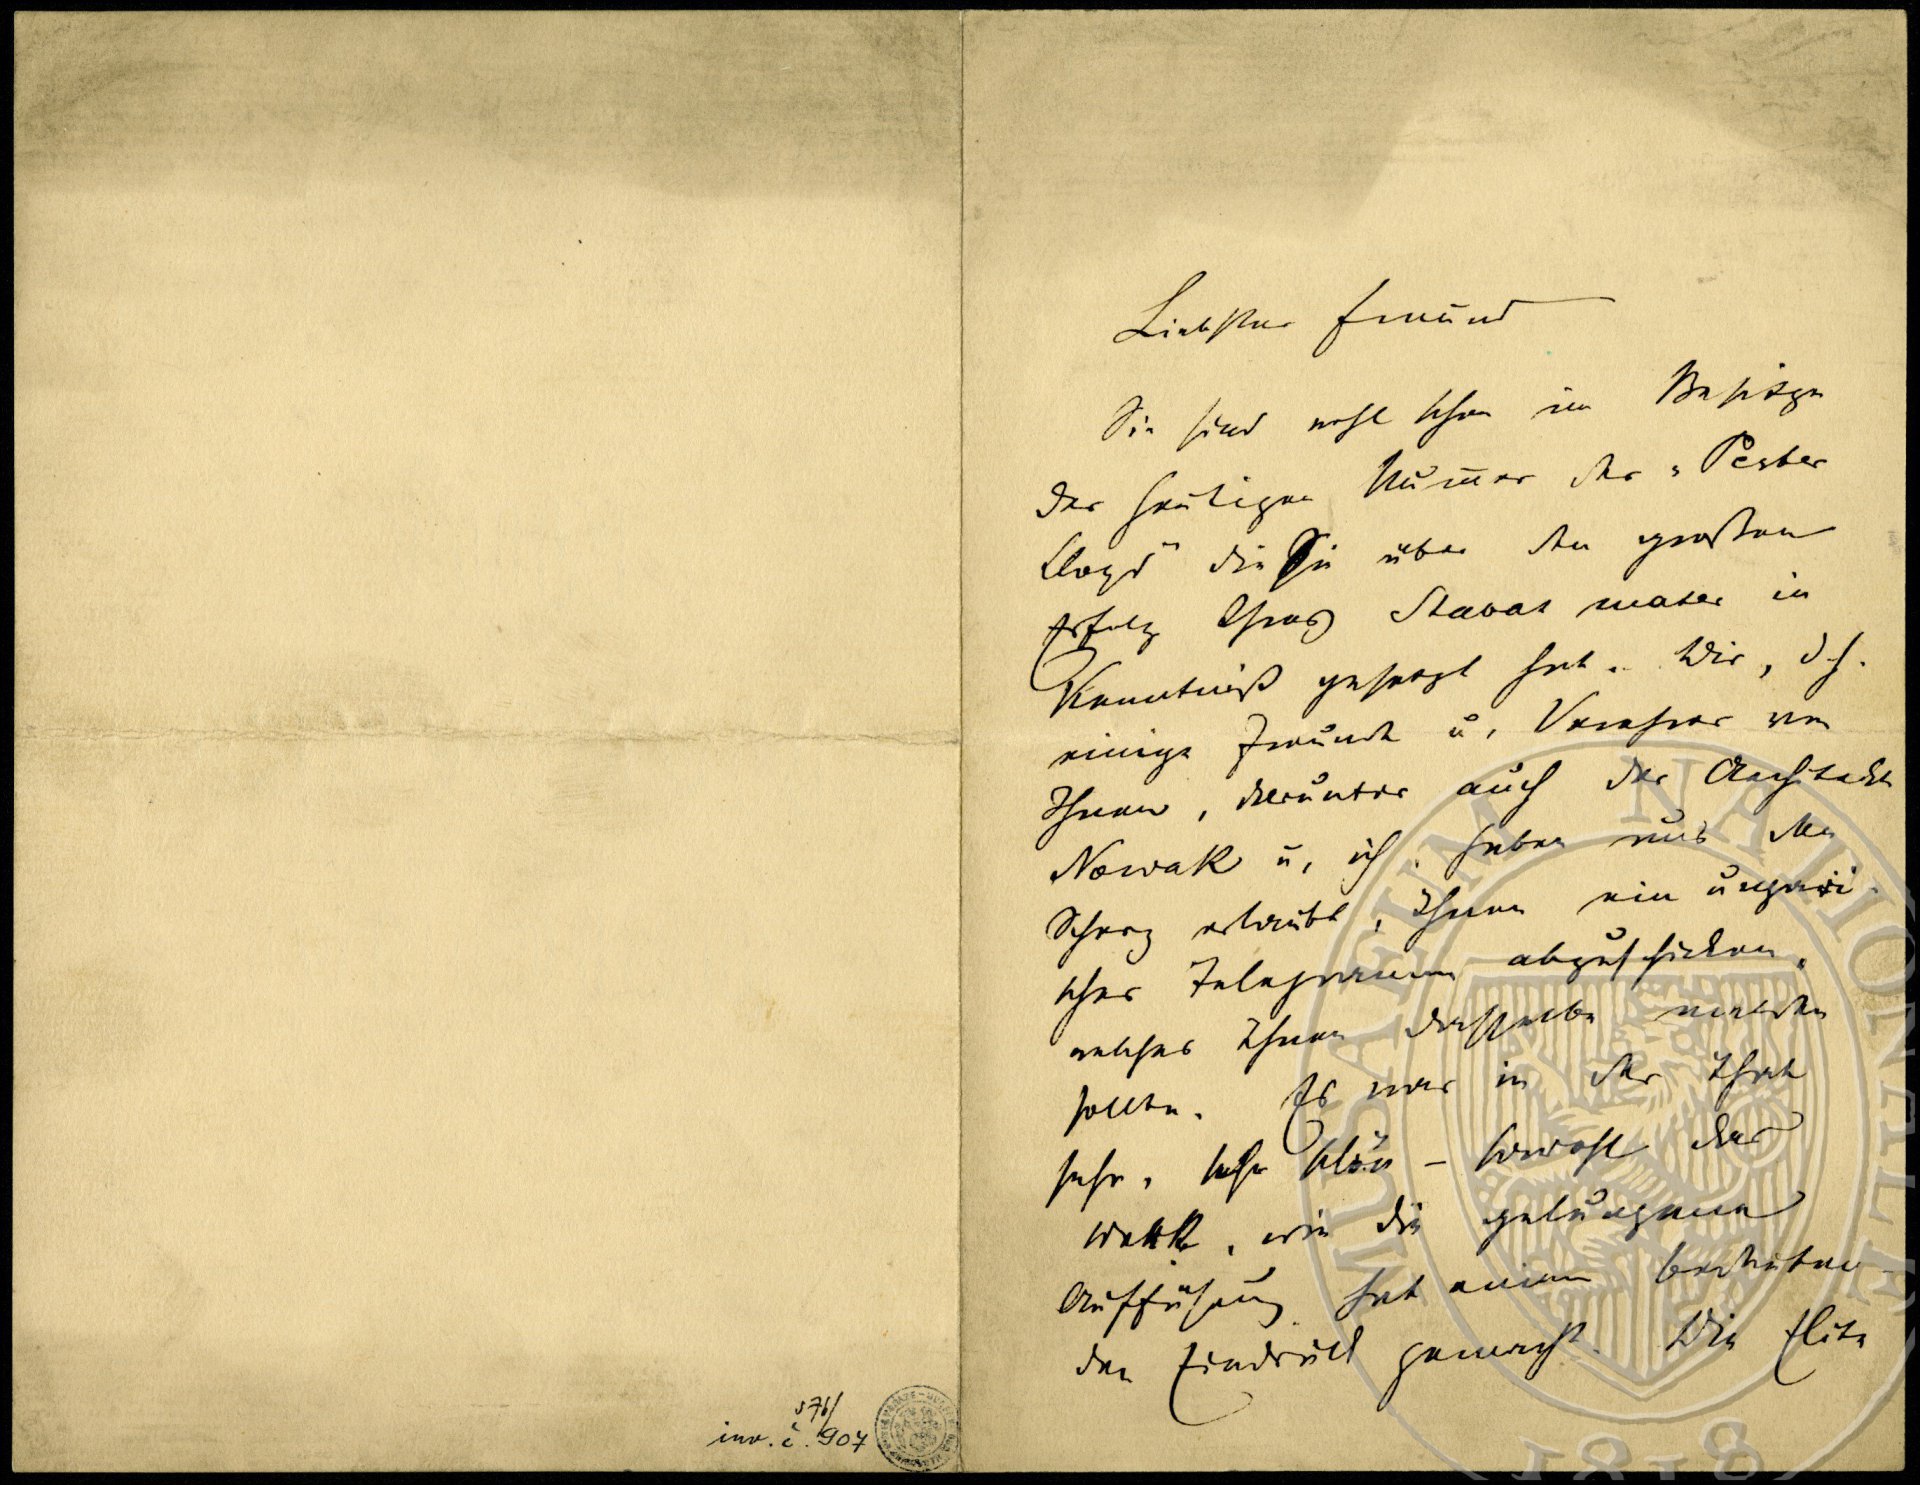 Liebster Freund
Sie sind wohl schon im Besitze
der heutigen Nummer des „Pester
Lloyd" die Sie über den großen
Erfolg Ihres Stabat mater in
Kenntniß gesetzt hat. Wir, d. h.
einige Freunde u. Verehrer von
Ihnen, darunter auch der Architekt
Nowak u. ich, haben uns den
Scherz erlaubt, Ihnen ein ungari-
sches Telegramm abzuschicken,
welches Ihnen dasselbe melden
sollte. Es war in der That
sehr, sehr schön – sowohl das
Werk, wie die gelungene
Aufführung hat einen bedeuten-
den Eindruck gemacht. Die Elite
576/
inv. č. 907
MUSAEUM NATIONALE
1818